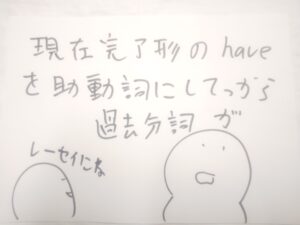 現在完了形のhave
を助動詞にしてっから
過去分詞が
レーセイにね